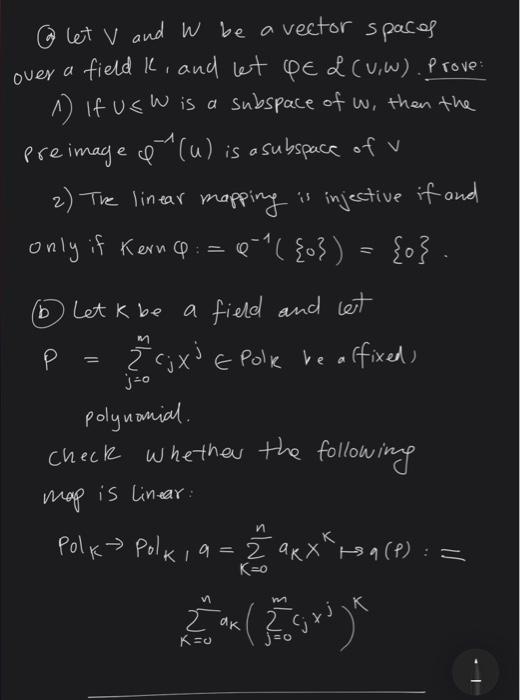 ⓐ Let V and W be a vector spaces
over a field K, and let φ ∈ L(V,W). Prove:
1) If U ≤ W is a subspace of W, then the
preimage φ⁻¹(U) is a subspace of V
2) The linear mapping is injective if and
only if Kern φ := φ⁻¹({0}) = {0}.
ⓑ Let K be a field and let
P = ∑_{j=0}^{m} c_j x^j ∈ Pol_K be a (fixed)
polynomial.
Check whether the following
map is linear:
Pol_K → Pol_K, q = ∑_{K=0}^{n} a_K x^K ↦ q(P) :=
∑_{K=0}^{n} a_K (∑_{j=0}^{m} c_j x^j)^K
1